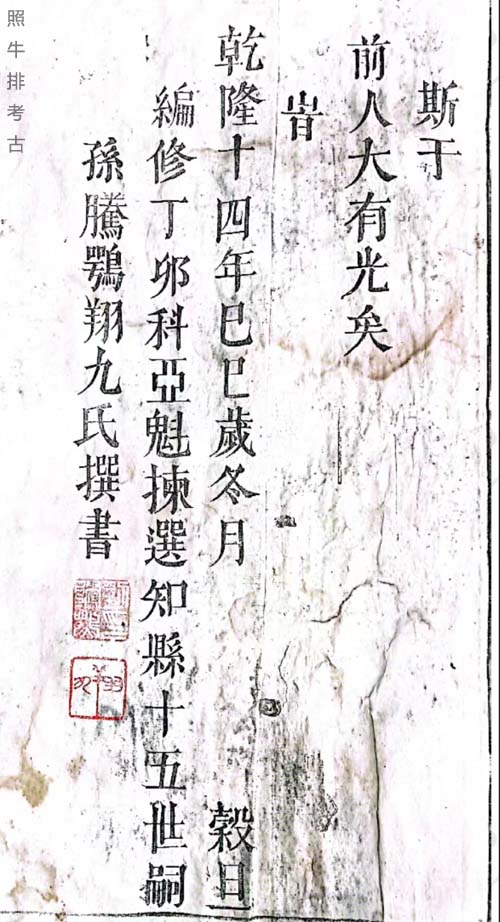 斯于
前人大有光矣
旹
乾隆十四年巳巳歲冬月 穀日
編修丁邜科亞魁揀選知縣十五世嗣
孫騰鶚翔九氏撰書
翔九
照牛排考古